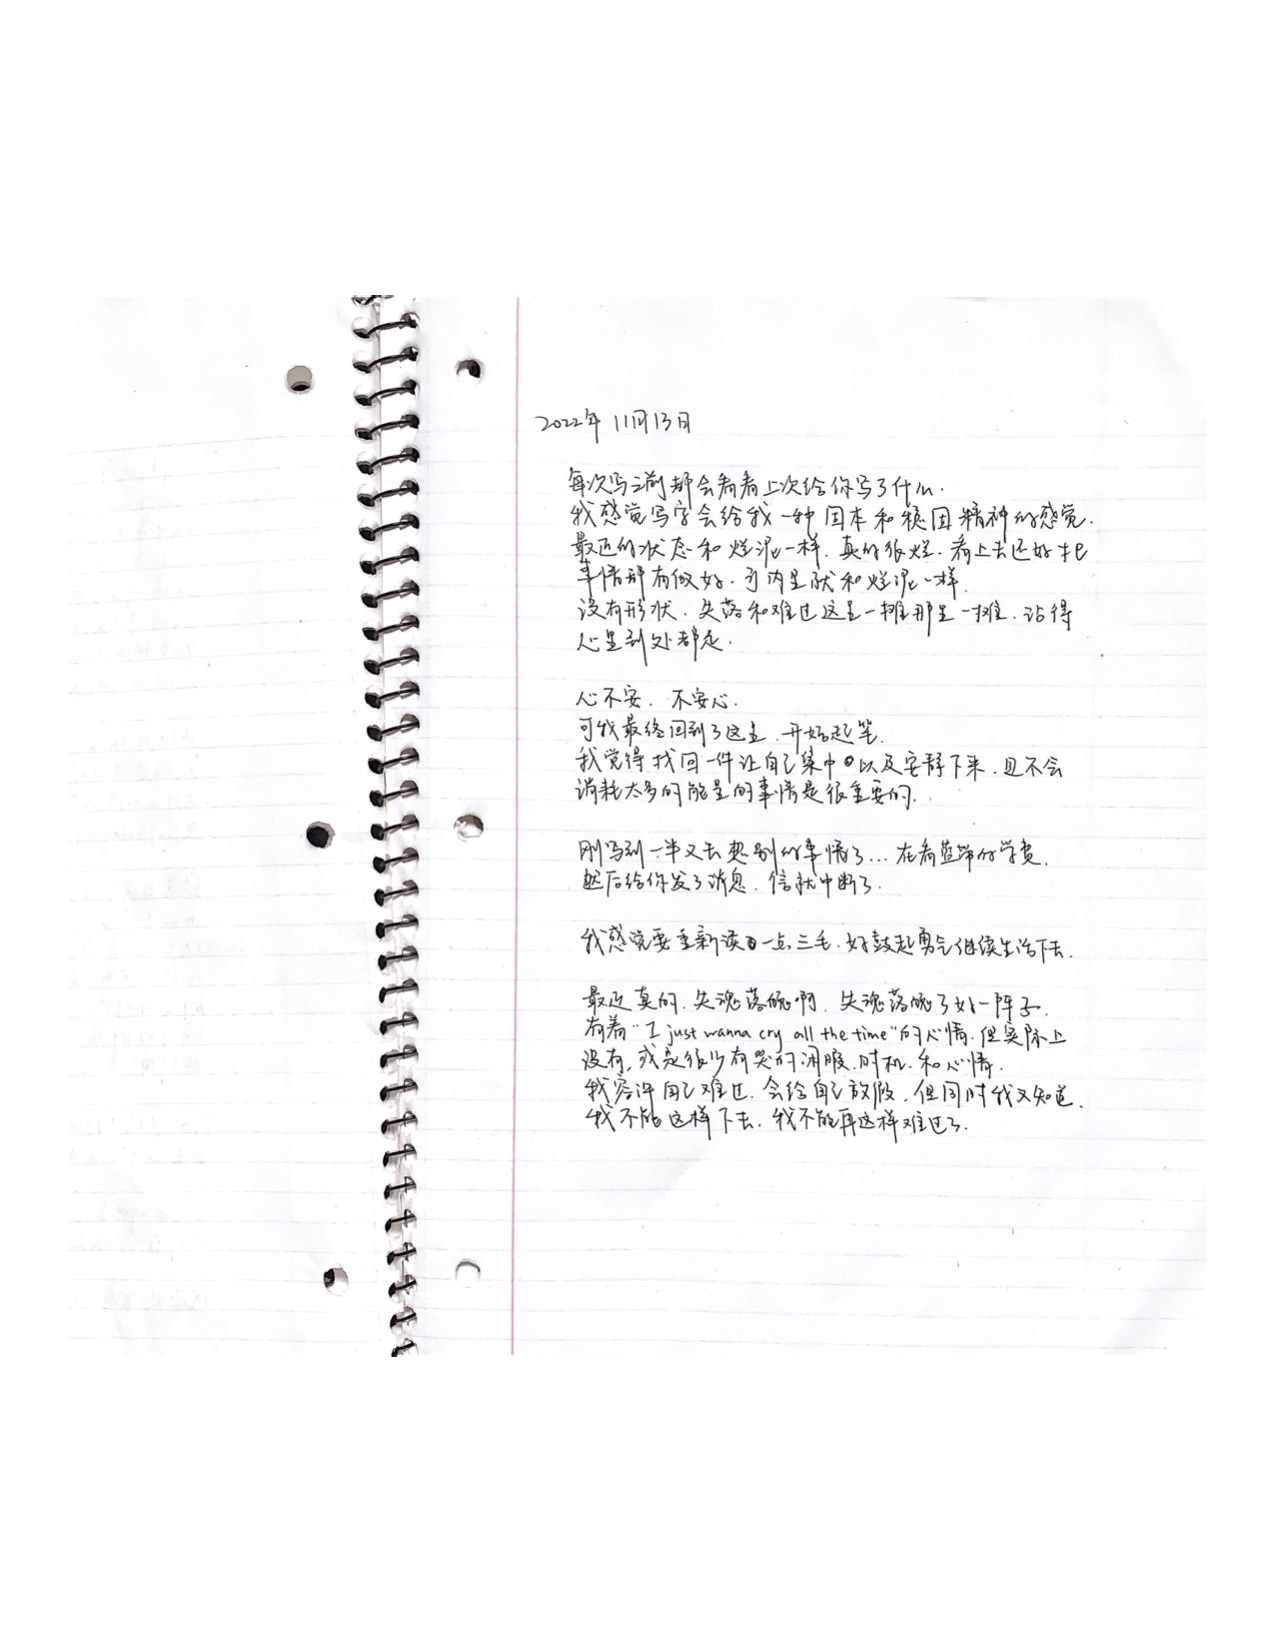 2022年 11月13日
每次写之前都会看看上次给你写了什么.
我感觉写字会给我一种固本和稳固精神的感觉.
最近的状态和烂泥一样. 真的很烂. 看上去还好 把
事情都有做好. 可内里就和烂泥一样.
没有形状. 失落和难过这里一摊那里一摊. 沾得
心里到处都是.
心不安. 不安心.
可我最终回到了这里. 开始起笔.
我觉得找回一件让自己集中以及安静下来. 且不会
消耗太多的能量的事情是很重要的.
刚写到一半又去想别的事情了... 在看蓝带的学费.
然后给你发了消息. 信就中断了.
我感觉要重新读一点三毛. 好鼓起勇气继续生活下去.
最近真的. 失魂落魄啊. 失魂落魄了好一阵子.
有着 "I just wanna cry all the time" 的心情. 但实际上
没有. 我是很少有哭的闲暇. 时机. 和心情.
我容许自己难过. 会给自己放假. 但同时我又知道.
我不能这样下去. 我不能再这样难过了.